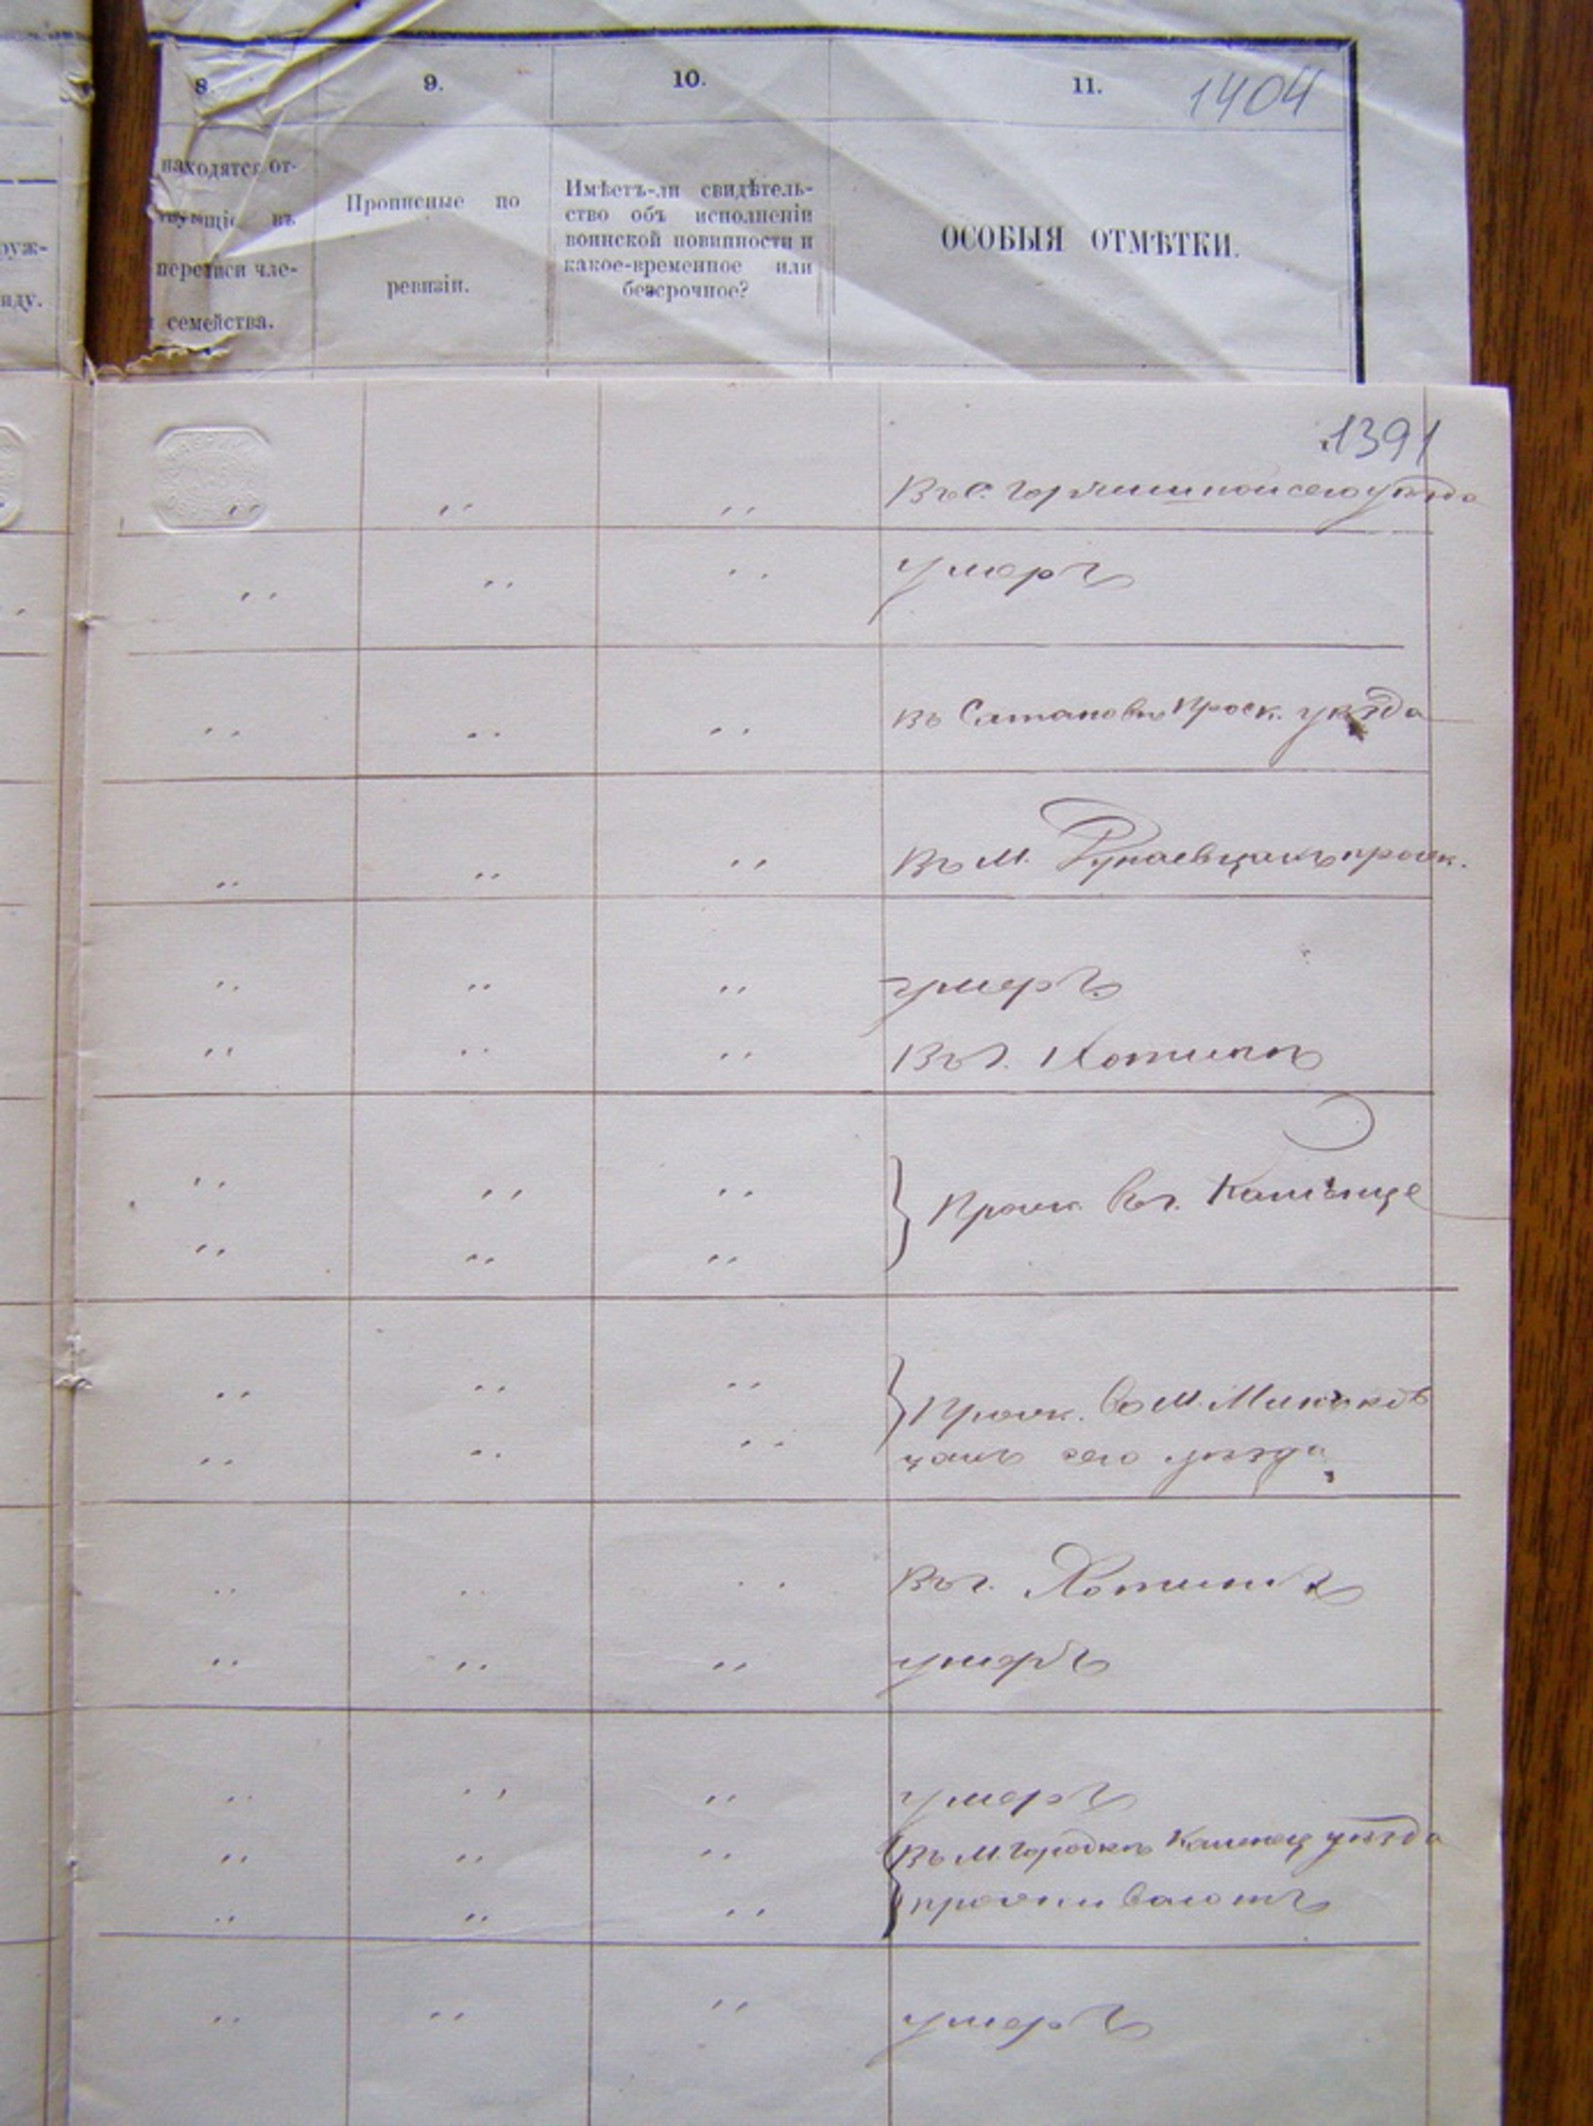 8. 9. 10. 11. 1404
находятся от-
Прописные по
ревизіи.
вующіе въ
переписи чле-
семейства.
руж-
яду.
Имѣетъ-ли свидѣтель-
ство объ исполненіи
воинской повинности и
какое-временное или
безсрочное?
ОСОБЫЯ ОТМѢТКИ.
1391
Въ с. сего уѣзда
" " "
умеръ
" " "
въ Сатановѣ Проск. уѣзда
" " "
Въ м. прож.
" " "
умеръ
" " "
Въ г. Хотинѣ
" " "
" " "
Прож. въ г. Каменце
" " "
" " "
Прож. въ м. Миньковъ
" " "
цахъ сего уѣзда
" " "
Въ г. Хотинѣ
" " "
умеръ
" " "
умеръ
" " "
Въ м. Городкѣ Каменец уѣзда
" " "
проживаютъ
" " "
умеръ
" " "